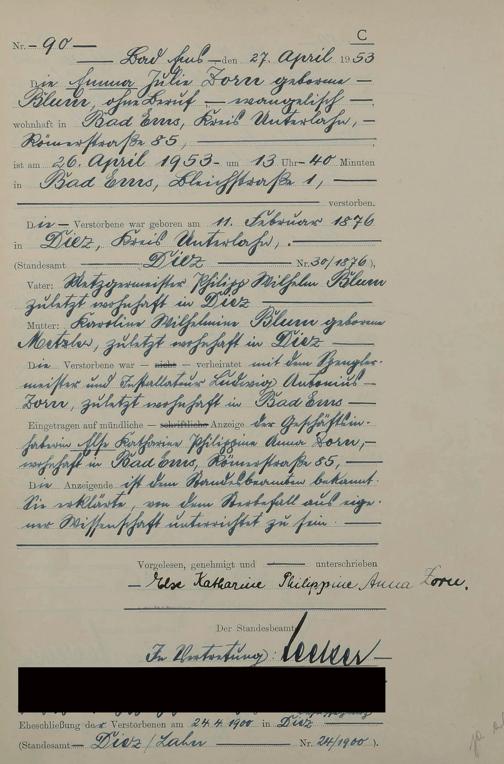 C
Nr. 90
Bad Ems den 27. April 1953
Die Emma Julie Zorn geborene
Blum, ohne Beruf — evangelisch —,
wohnhaft in Bad Ems, Kreis Unterlahn, —
Römerstraße 85,
ist am 26. April 1953 um 13 Uhr 40 Minuten
in Bad Ems, Bleichstraße 1,
verstorben.
Die Verstorbene war geboren am 11. Februar 1876
in Diez, Kreis Unterlahn,
(Standesamt Diez Nr. 30/1876),
Vater: Metzgermeister Philipp Wilhelm Blum
zuletzt wohnhaft in Diez
Mutter: Karoline Wilhelmine Blum geborene
Metzler, zuletzt wohnhaft in Diez
Die Verstorbene war — nicht — verheiratet mit dem Spengler-
meister und Installateur Ludwig Antonius
Zorn, zuletzt wohnhaft in Bad Ems
Eingetragen auf mündliche — schriftliche Anzeige der Geschäftsin-
haberin Else Katharine Philippine Anna Zorn, —
wohnhaft in Bad Ems, Römerstraße 85,
Die Anzeigende ist dem Standesbeamten bekannt.
Sie erklärte, von dem Sterbefall aus eige-
ner Wissenschaft unterrichtet zu sein.
Vorgelesen, genehmigt und unterschrieben
Else Katharine Philippine Anna Zorn.
Der Standesbeamte
In Vertretung:
Eheschließung der Verstorbenen am 24.4.1900 in Diez
(Standesamt Diez/Lahn Nr. 24/1900).